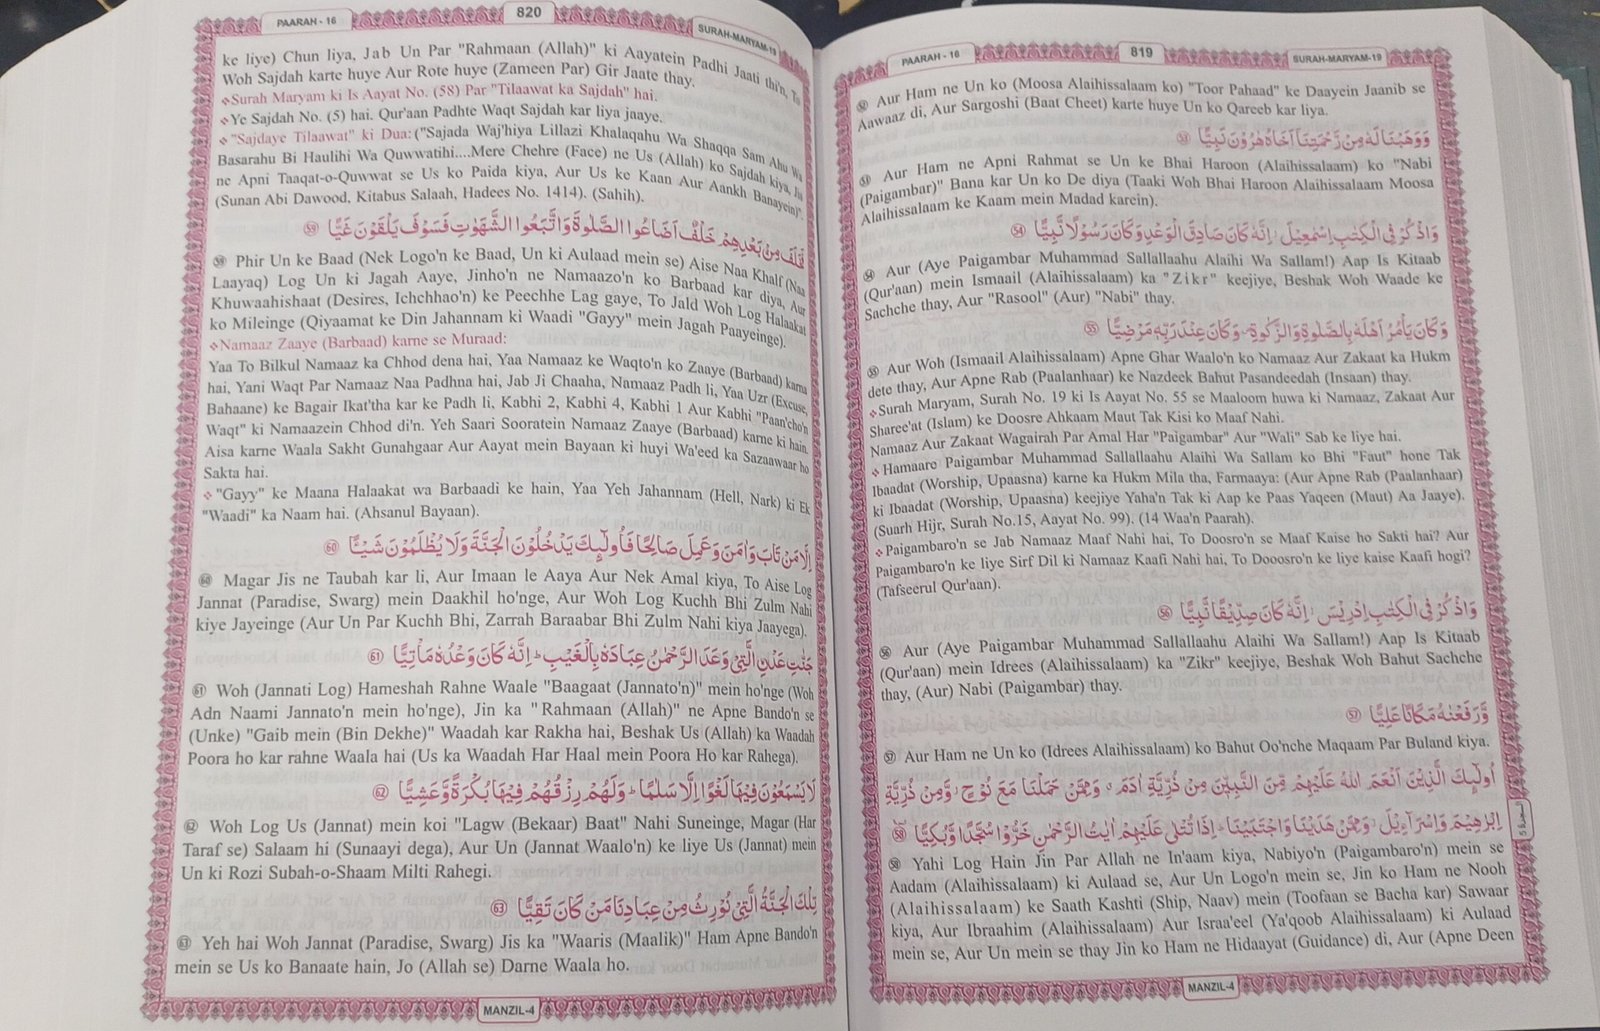 PAARAH - 16
819
SURAH-MARYAM-19
㊾ Aur Ham ne Un ko (Moosa Alaihissalaam ko) "Toor Pahaad" ke Daayein Jaanib se
Aawaaz di, Aur Sargoshi (Baat Cheet) karte huye Un ko Qareeb kar liya.
وَوَهَبْنَا لَهٗ مِنْ رَّحْمَتِنَاۤ اَخَاهُ هٰرُوْنَ نَبِیًّا ﴿53﴾
Aur Ham ne Apni Rahmat se Un ke Bhai Haroon (Alaihissalaam) ko "Nabi
(Paigambar)" Bana kar Un ko De diya (Taaki Woh Bhai Haroon Alaihissalaam Moosa
Alaihissalaam ke Kaam mein Madad karein).
وَاذْكُرْ فِی الْكِتٰبِ اِسْمٰعِیْلَ ؗ اِنَّهٗ كَانَ صَادِقَ الْوَعْدِ وَكَانَ رَسُوْلًا نَّبِیًّا ﴿54﴾
54 Aur (Aye Paigambar Muhammad Sallallaahu Alaihi Wa Sallam!) Aap Is Kitaab
(Qur'aan) mein Ismaail (Alaihissalaam) ka "Zikr" keejiye, Beshak Woh Waade ke
Sachche thay, Aur "Rasool" (Aur) "Nabi" thay.
وَكَانَ یَاْمُرُ اَهْلَهٗ بِالصَّلٰوةِ وَالزَّكٰوةِ ۪ وَكَانَ عِنْدَ رَبِّهٖ مَرْضِیًّا ﴿55﴾
55 Aur Woh (Ismaail Alaihissalaam) Apne Ghar Waalo'n ko Namaaz Aur Zakaat ka Hukm
dete thay, Aur Apne Rab (Paalanhaar) ke Nazdeek Bahut Pasandeedah (Insaan) thay.
❖Surah Maryam, Surah No. 19 ki Is Aayat No. 55 se Maaloom huwa ki Namaaz, Zakaat Aur
Sharee'at (Islam) ke Doosre Ahkaam Maut Tak Kisi ko Maaf Nahi.
Namaaz Aur Zakaat Wagairah Par Amal Har "Paigambar" Aur "Wali" Sab ke liye hai.
❖Hamaare Paigambar Muhammad Sallallaahu Alaihi Wa Sallam ko Bhi "Faut" hone Tak
Ibaadat (Worship, Upaasna) karne ka Hukm Mila tha, Farmaaya: (Aur Apne Rab (Paalanhaar)
ki Ibaadat (Worship, Upaasna) keejiye Yaha'n Tak ki Aap ke Paas Yaqeen (Maut) Aa Jaaye).
(Suarh Hijr, Surah No.15, Aayat No. 99). (14 Waa'n Paarah).
❖Paigambaro'n se Jab Namaaz Maaf Nahi hai, To Doosro'n se Maaf Kaise ho Sakti hai? Aur
Paigambaro'n ke liye Sirf Dil ki Namaaz Kaafi Nahi hai, To Dooosro'n ke liye kaise Kaafi hogi?
(Tafseerul Qur'aan).
وَاذْكُرْ فِی الْكِتٰبِ اِدْرِیْسَ ؗ اِنَّهٗ كَانَ صِدِّیْقًا نَّبِیًّا ﴿56﴾
56 Aur (Aye Paigambar Muhammad Sallallaahu Alaihi Wa Sallam!) Aap Is Kitaab
(Qur'aan) mein Idrees (Alaihissalaam) ka "Zikr" keejiye, Beshak Woh Bahut Sachche
thay, (Aur) Nabi (Paigambar) thay.
وَّرَفَعْنٰهُ مَكَانًا عَلِیًّا ﴿57﴾
57 Aur Ham ne Un ko (Idrees Alaihissalaam) ko Bahut Oo'nche Maqaam Par Buland kiya.
اُولٰٓىِٕكَ الَّذِیْنَ اَنْعَمَ اللّٰهُ عَلَیْهِمْ مِّنَ النَّبِیّٖنَ مِنْ ذُرِّیَّةِ اٰدَمَ ۗ وَمِمَّنْ حَمَلْنَا مَعَ نُوْحٍ ؗ وَّمِنْ ذُرِّیَّةِ
اِبْرٰهِیْمَ وَاِسْرَآءِیْلَ ؗ وَمِمَّنْ هَدَیْنَا وَاجْتَبَیْنَا ؕ اِذَا تُتْلٰی عَلَیْهِمْ اٰیٰتُ الرَّحْمٰنِ خَرُّوْا سُجَّدًا وَّبُكِیًّا ﴿58﴾
السجدة 5
58 Yahi Log Hain Jin Par Allah ne In'aam kiya, Nabiyo'n (Paigambaro'n) mein se
Aadam (Alaihissalaam) ki Aulaad se, Aur Un Logo'n mein se, Jin ko Ham ne Nooh
(Alaihissalaam) ke Saath Kashti (Ship, Naav) mein (Toofaan se Bacha kar) Sawaar
kiya, Aur Ibraahim (Alaihissalaam) Aur Israa'eel (Ya'qoob Alaihissalaam) ki Aulaad
mein se, Aur Un mein se thay Jin ko Ham ne Hidaayat (Guidance) di, Aur (Apne Deen
MANZIL-4
PAARAH - 16
820
SURAH-MARYAM-19
ke liye) Chun liya, Jab Un Par "Rahmaan (Allah)" ki Aayatein Padhi Jaati thi'n, To
Woh Sajdah karte huye Aur Rote huye (Zameen Par) Gir Jaate thay.
❖Surah Maryam ki Is Aayat No. (58) Par "Tilaawat ka Sajdah" hai.
❖Ye Sajdah No. (5) hai. Qur'aan Padhte Waqt Sajdah kar liya jaaye.
❖"Sajdaye Tilaawat" ki Dua: ("Sajada Waj'hiya Lillazi Khalaqahu Wa Shaqqa Sam Ahu Wa
Basarahu Bi Haulihi Wa Quwwatihi....Mere Chehre (Face) ne Us (Allah) ko Sajdah kiya, Jis
ne Apni Taaqat-o-Quwwat se Us ko Paida kiya, Aur Us ke Kaan Aur Aankh Banayein)".
(Sunan Abi Dawood, Kitabus Salaah, Hadees No. 1414). (Sahih).
فَخَلَفَ مِنْۢ بَعْدِهِمْ خَلْفٌ اَضَاعُوا الصَّلٰوةَ وَاتَّبَعُوا الشَّهَوٰتِ فَسَوْفَ یَلْقَوْنَ غَیًّا ﴿59﴾
59 Phir Un ke Baad (Nek Logo'n ke Baad, Un ki Aulaad mein se) Aise Naa Khalf (Naa
Laayaq) Log Un ki Jagah Aaye, Jinho'n ne Namaazo'n ko Barbaad kar diya, Aur
Khuwaahishaat (Desires, Ichchhao'n) ke Peechhe Lag gaye, To Jald Woh Log Halaakat
ko Mileinge (Qiyaamat ke Din Jahannam ki Waadi "Gayy" mein Jagah Paayeinge).
❖Namaaz Zaaye (Barbaad) karne se Muraad:
Yaa To Bilkul Namaaz ka Chhod dena hai, Yaa Namaaz ke Waqto'n ko Zaaye (Barbaad) karna
hai, Yani Waqt Par Namaaz Naa Padhna hai, Jab Ji Chaaha, Namaaz Padh li, Yaa Uzr (Excuse,
Bahaane) ke Bagair Ikat'tha kar ke Padh li, Kabhi 2, Kabhi 4, Kabhi 1 Aur Kabhi "Paan'cho'n
Waqt" ki Namaazein Chhod di'n. Yeh Saari Sooratein Namaaz Zaaye (Barbaad) karne ki hain.
Aisa karne Waala Sakht Gunahgaar Aur Aayat mein Bayaan ki huyi Wa'eed ka Sazaawaar ho
Sakta hai.
❖"Gayy" ke Maana Halaakat wa Barbaadi ke hain, Yaa Yeh Jahannam (Hell, Nark) ki Ek
"Waadi" ka Naam hai. (Ahsanul Bayaan).
اِلَّا مَنْ تَابَ وَاٰمَنَ وَعَمِلَ صَالِحًا فَاُولٰٓىِٕكَ یَدْخُلُوْنَ الْجَنَّةَ وَلَا یُظْلَمُوْنَ شَیْـًٔا ﴿60﴾
60 Magar Jis ne Taubah kar li, Aur Imaan le Aaya Aur Nek Amal kiya, To Aise Log
Jannat (Paradise, Swarg) mein Daakhil ho'nge, Aur Woh Log Kuchh Bhi Zulm Nahi
kiye Jayeinge (Aur Un Par Kuchh Bhi, Zarrah Baraabar Bhi Zulm Nahi kiya Jaayega).
جَنّٰتِ عَدْنِ الَّتِیْ وَعَدَ الرَّحْمٰنُ عِبَادَهٗ بِالْغَیْبِ ؕ اِنَّهٗ كَانَ وَعْدُهٗ مَاْتِیًّا ﴿61﴾
61 Woh (Jannati Log) Hameshah Rahne Waale "Baagaat (Jannato'n)" mein ho'nge (Woh
Adn Naami Jannato'n mein ho'nge), Jin ka "Rahmaan (Allah)" ne Apne Bando'n se
(Unke) "Gaib mein (Bin Dekhe)" Waadah kar Rakha hai, Beshak Us (Allah) ka Waadah
Poora ho kar rahne Waala hai (Us ka Waadah Har Haal mein Poora Ho kar Rahega).
لَا یَسْمَعُوْنَ فِیْهَا لَغْوًا اِلَّا سَلٰمًا ؕ وَلَهُمْ رِزْقُهُمْ فِیْهَا بُكْرَةً وَّعَشِیًّا ﴿62﴾
62 Woh Log Us (Jannat) mein koi "Lagw (Bekaar) Baat" Nahi Suneinge, Magar (Har
Taraf se) Salaam hi (Sunaayi dega), Aur Un (Jannat Waalo'n) ke liye Us (Jannat) mein
Un ki Rozi Subah-o-Shaam Milti Rahegi.
تِلْكَ الْجَنَّةُ الَّتِیْ نُوْرِثُ مِنْ عِبَادِنَا مَنْ كَانَ تَقِیًّا ﴿63﴾
63 Yeh hai Woh Jannat (Paradise, Swarg) Jis ka "Waaris (Maalik)" Ham Apne Bando'n
mein se Us ko Banaate hain, Jo (Allah se) Darne Waala ho.
MANZIL-4